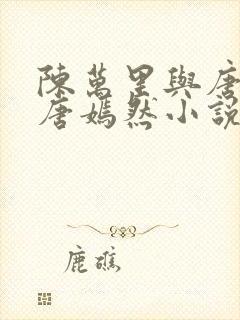 陳萬里與唐
唐嫣然小說
鹿礁